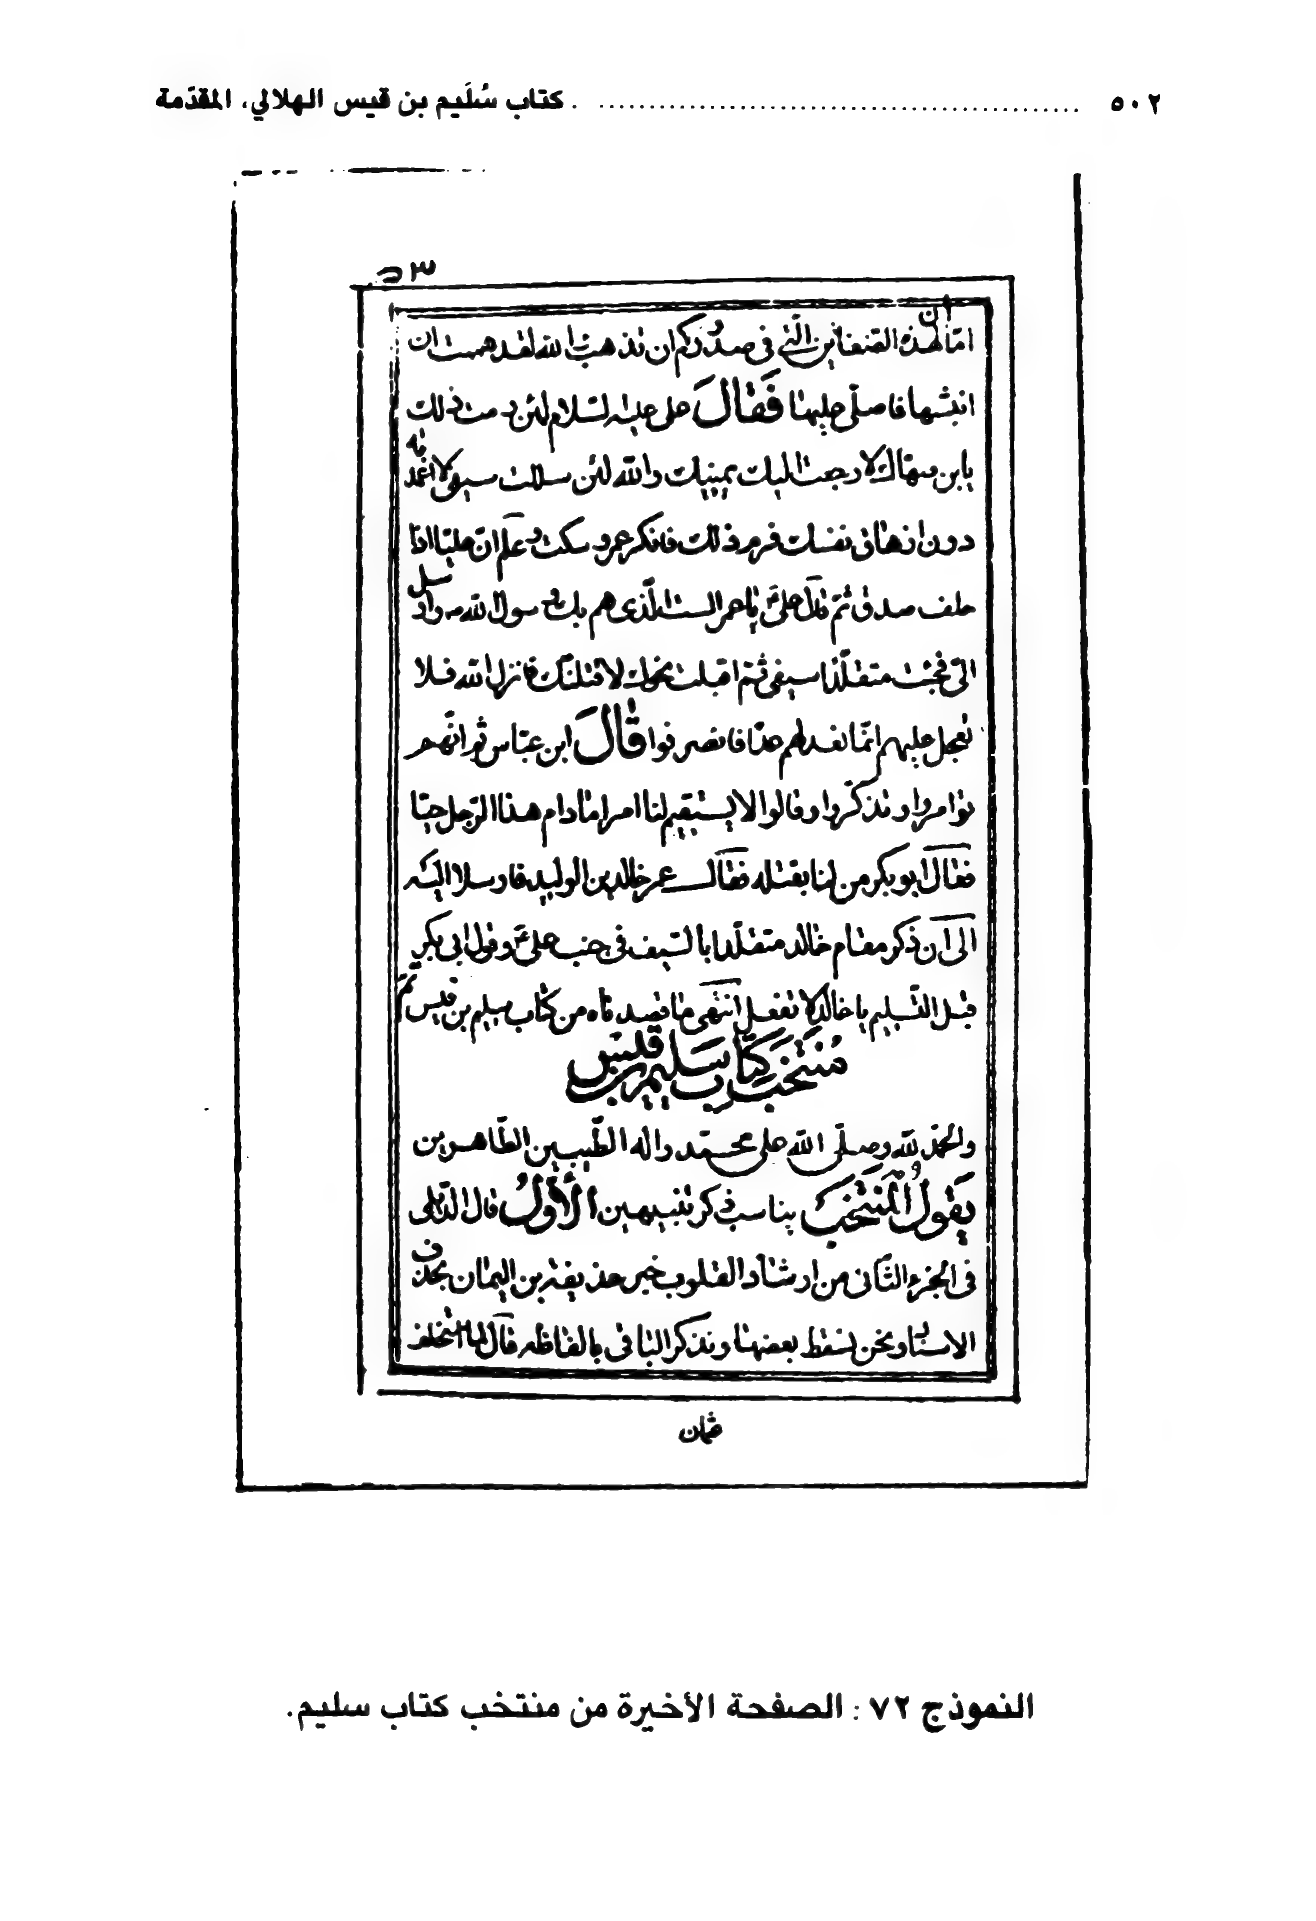 ٥٠٢ ........ كتاب سُلَيم بن قيس الهلالي، المقدّمة
٥٣
امّا ان لهذه الضغاين الّتي في صدوركم ان تذهب والله لقد هممت ان
انبشها فاصلّي عليها فَقالَ علي عليه السّلام لئن رمت ذلك
يابن صهاك لا رجعت اليك يمينك والله لئن سللت سيفي لا اغمدته
دون ازهاق نفسك فرم ذلك فانكر عمرو سكت وعلم انّ عليّا اذا
حلف صدق ثمّ قال عليّ يا عمر الست الّذي هم بك رسول الله ص وارسل
الىّ فجئت متقلّدا سيفي ثم اقبلت نحوك لاقتلنّك فانزل الله فلا
تعجل عليهم انّما نعد لهم عدّا فانصرفوا قالَ ابن عبّاس ثم انّهم
توامروا وتذكّروا وقالوا لا يستقيم لنا امر ما دام هذا الرّجل حيّا
فقال ابو بكر من لنا بقتله فقال عمر خالد بن الوليد فارسلا اليه
الى ان ذكر مقام خالد متقلّدا بالسّيف في جنب عليّ وقول ابي بكر
قبل التّسليم يا خالد لا تفعل انتهى ما قصدناه من كتاب سليم بن قيس تمّ
مُنتَخَب كتاب سليم بن قيس
والحمد لله وصلّى الله على محمّد واله الطّيبين الطّاهرين
يَقولُ المُنتَخِب يناسب ذكر تنبيهين الأوّلُ قال الدّيلمي
في الجزء الثّاني من ارشاد القلوب خبر حذيفة بن اليمان بحذف
الاسناد ونحن نسقط بعضها ونذكر الباقي بالفاظه قال لما استخلف
عثمان
النموذج ٧٢ : الصفحة الأخيرة من منتخب كتاب سليم.